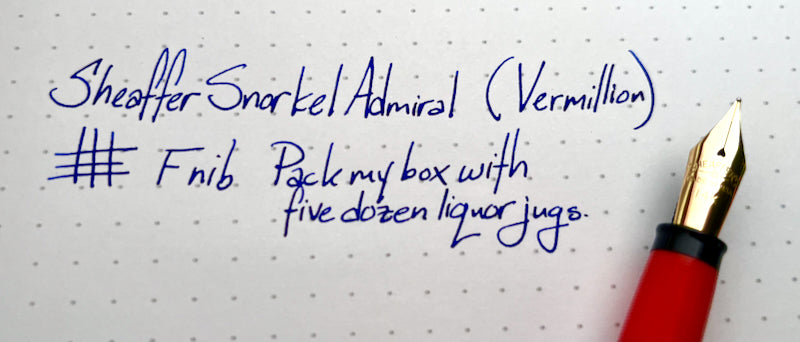 Sheaffer Snorkel Admiral (Vermillion)
F nib Pack my box with
five dozen liquor jugs.